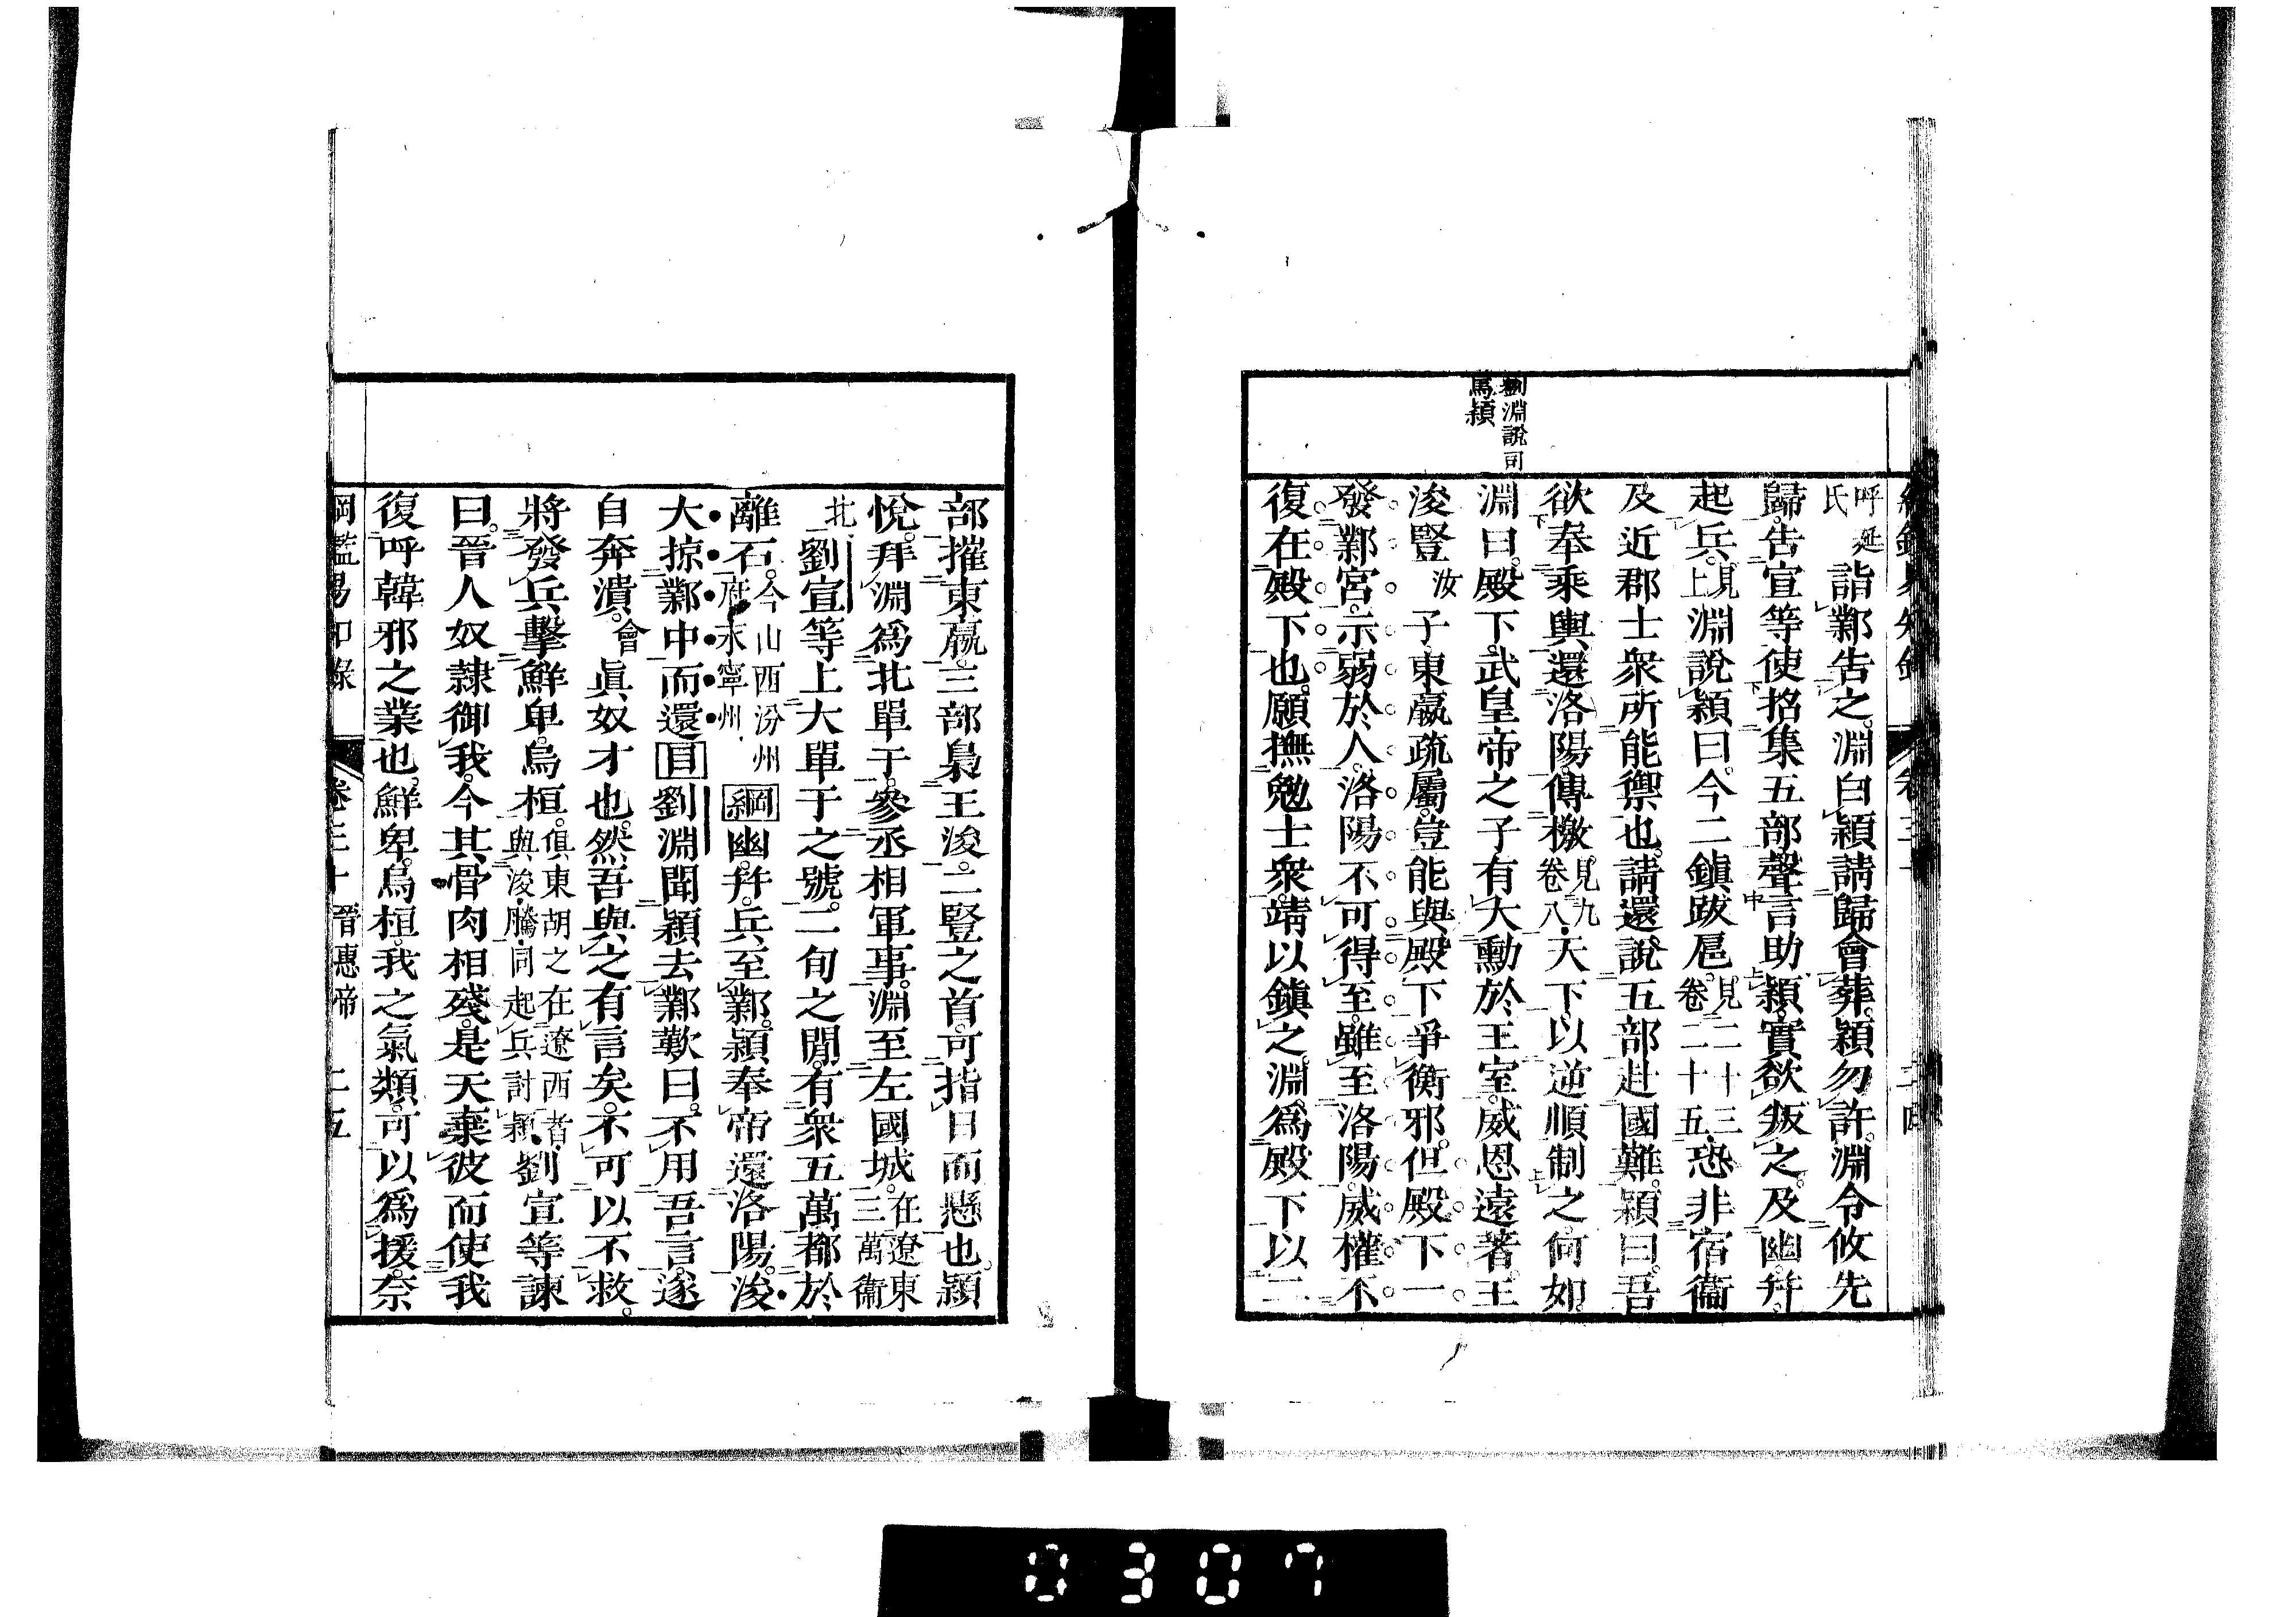 劉淵說司
馬穎
呼延
氏
詣鄴告之。淵白穎請歸會葬。穎勿許。淵令攸先
歸。告宣等使招集五部聲言助穎。實欲叛之。及幽幷。
起兵。見上淵說穎曰。今二鎮跋扈。見二十三卷二十五恐非宿衞
及近郡士衆所能禦也。請還說五部赴國難。穎曰。吾
欲奉乘輿還洛陽。傳檄。見九卷八天下以逆順制之。何如。
淵曰。殿下。武皇帝之子有大勳於王室。威恩遠著。王
浚豎汝子東嬴疏屬。豈能與殿下爭衡邪。但殿下一
發鄴宮。示弱於人。洛陽不可得至。雖至洛陽。威權不
復在殿下也。願撫勉士衆。靖以鎮之。淵爲殿下以二
部摧東嬴。三部梟王浚。二豎之首。可指日而懸也。穎
悅。拜淵爲北單于。參丞相軍事。淵至左國城。在遼東三萬衞
北劉宣等上大單于之號。二旬之閒。有衆五萬都於
離石。今山西汾州府永寧州綱幽。幷。兵至鄴。穎奉帝還洛陽。浚
大掠鄴中而還目劉淵聞穎去鄴歎曰。不用吾言。遂
自奔潰。會眞奴才也。然吾與之有言矣。不可以不救。
將發兵擊鮮卑。烏桓。俱東胡之在遼西者與浚騰同起兵討穎劉宣等諫
曰。晉人奴隸御我。今其骨肉相殘。是天棄彼而使我
復呼韓邪之業也。鮮卑。烏桓。我之氣類。可以爲援。奈
綱鑑易知錄 卷三十 晉惠帝 二五
0307